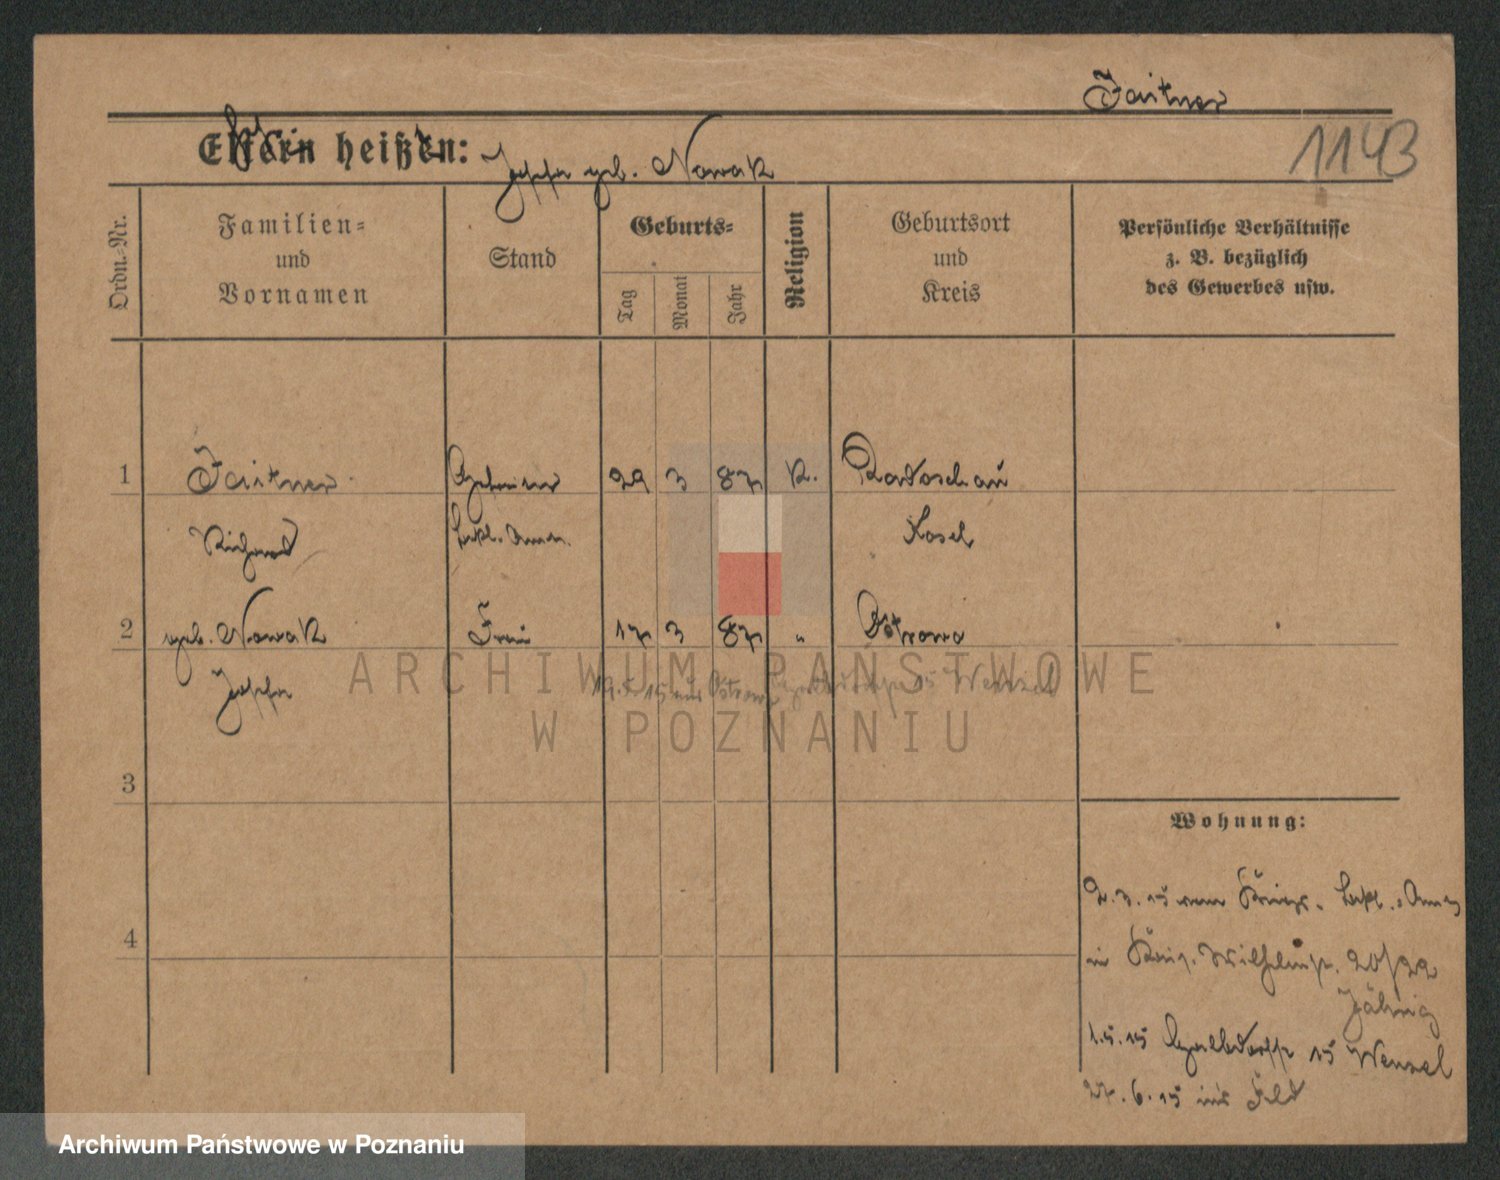 Jaitner
1143
Eltern heißen:
Josepha geb. Nowak
Ordn.-Nr.
Familien-
und
Vornamen
Stand
Geburts-
Tag
Monat
Jahr
Religion
Geburtsort
und
Kreis
Persönliche Verhältnisse
z. B. bezüglich
des Gewerbes usw.
1 Jaitner 29 3 87 K. Radoschau
Richard Kosel
2 geb. Nowak Frau 17 3 87 " Ostrowo
Josepha
19.5.15 aus Ostrowo 15 Wenzel
3
4
Wohnung:
2.3.15 vom
in König. Wilhelmstr. 20/22
Jähnig
1.5.15 15 Wenzel
27.6.15 ins Feld
ARCHIWUM PAŃSTWOWE
W POZNANIU
Archiwum Państwowe w Poznaniu